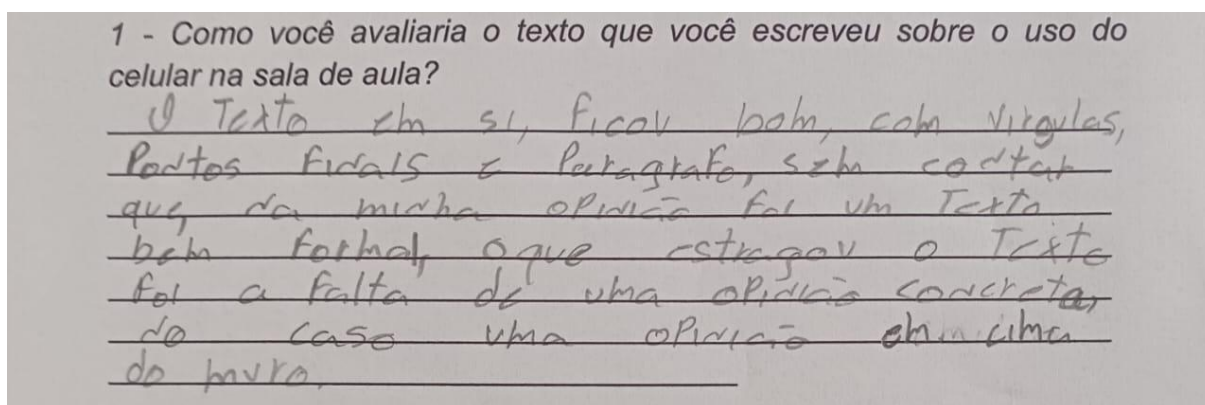 1 - Como você avaliaria o texto que você escreveu sobre o uso do
celular na sala de aula?
O Texto em si, ficou bom, com virgulas,
Pontos finais e Paragrafo, sem contar
que, na minha opinião foi um Texto
bem formal, o que estragou o Texto
foi a falta de uma opinião concreta,
no caso uma opinião em cima
do muro.